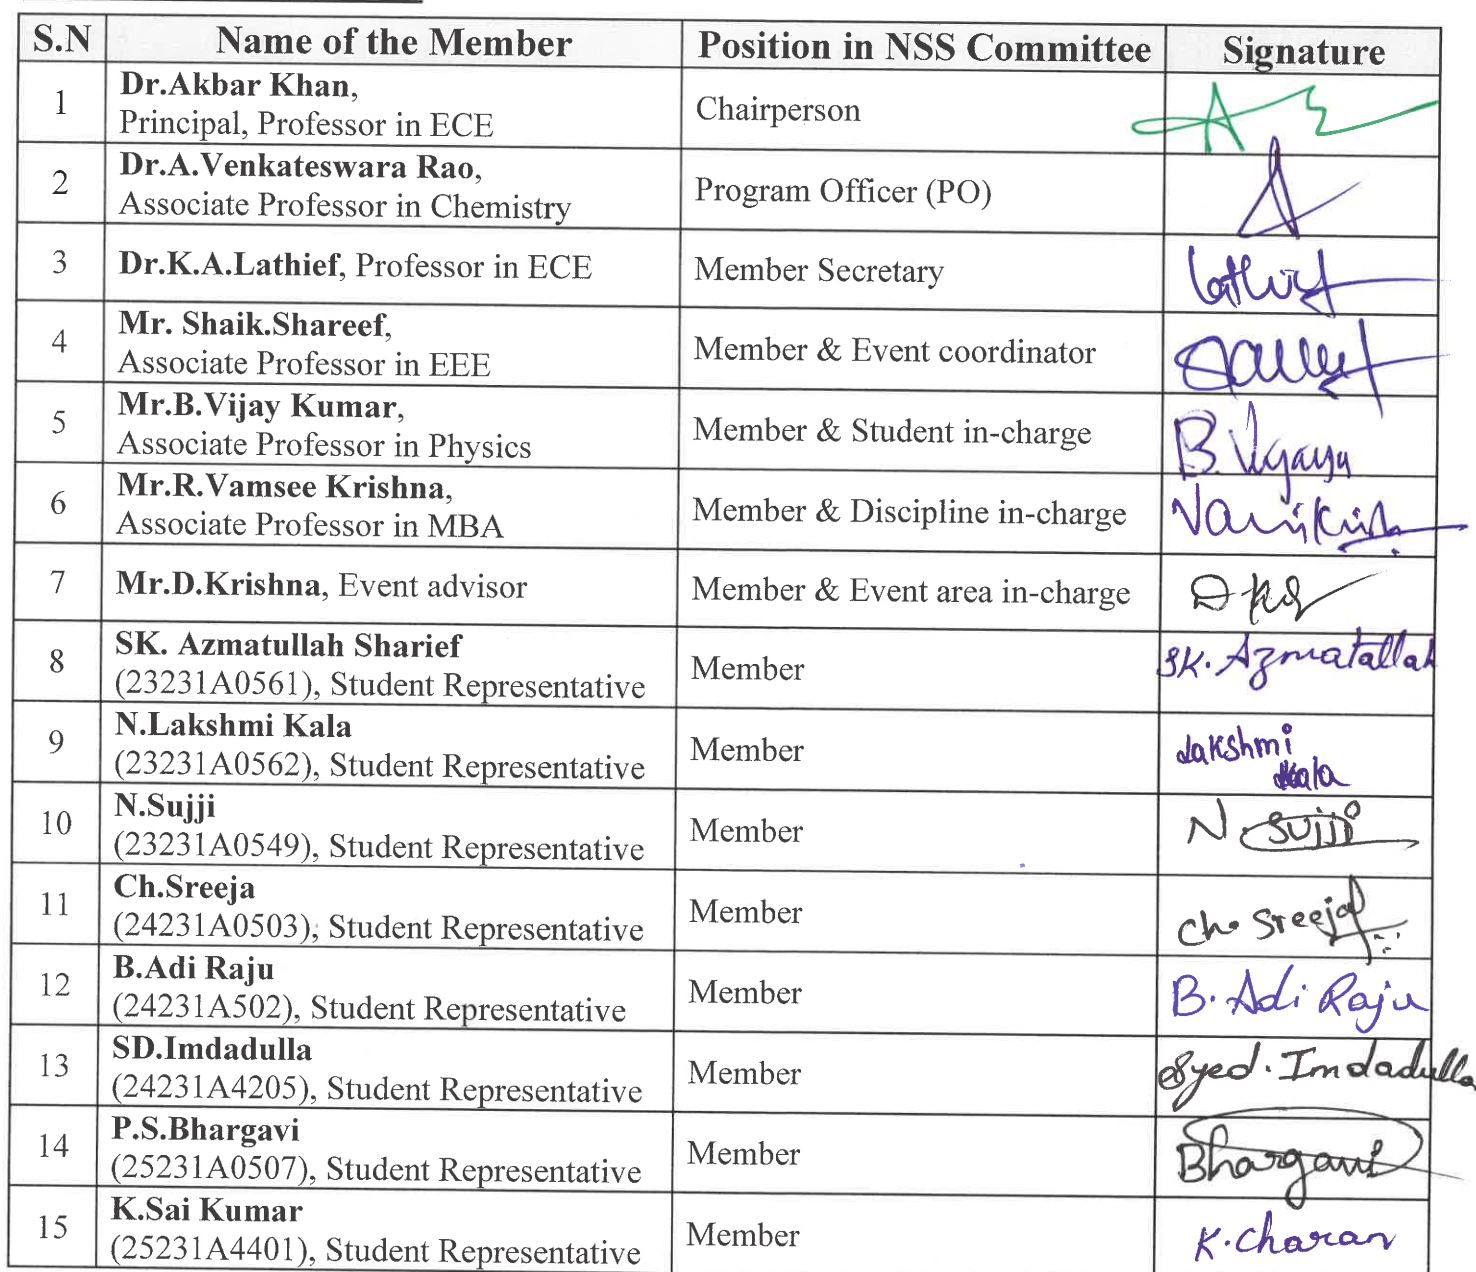 S.N Name of the Member Position in NSS Committee Signature
1 Dr.Akbar Khan,
Principal, Professor in ECE Chairperson
2 Dr.A.Venkateswara Rao,
Associate Professor in Chemistry Program Officer (PO)
3 Dr.K.A.Lathief, Professor in ECE Member Secretary Lathief
4 Mr. Shaik.Shareef,
Associate Professor in EEE Member & Event coordinator
5 Mr.B.Vijay Kumar,
Associate Professor in Physics Member & Student in-charge B. Vijaya
6 Mr.R.Vamsee Krishna,
Associate Professor in MBA Member & Discipline in-charge
7 Mr.D.Krishna, Event advisor Member & Event area in-charge
8 SK. Azmatullah Sharief
(23231A0561), Student Representative Member SK. Azmatallah
9 N.Lakshmi Kala
(23231A0562), Student Representative Member Lakshmi
Kala
10 N.Sujji
(23231A0549), Student Representative Member N Sujji
11 Ch.Sreeja
(24231A0503), Student Representative Member Ch. Sreeja
12 B.Adi Raju
(24231A502), Student Representative Member B. Adi Raju
13 SD.Imdadulla
(24231A4205), Student Representative Member Syed. Imdadulla
14 P.S.Bhargavi
(25231A0507), Student Representative Member Bhargavi
15 K.Sai Kumar
(25231A4401), Student Representative Member K. Charan